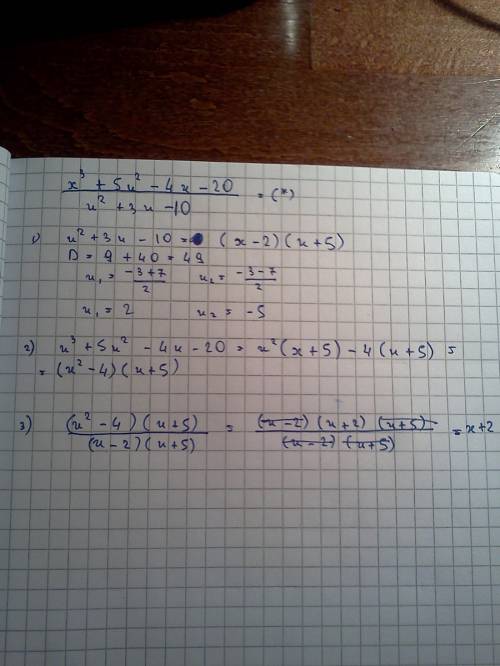 x³ + 5x² - 4x - 20 / x² + 3x - 10 = (*)
1) x² + 3x - 10 = (x - 2)(x + 5)
D = 9 + 40 = 49
x₁ = -3+7 / 2 x₂ = -3-7 / 2
x₁ = 2 x₂ = -5
2) x³ + 5x² - 4x - 20 = x²(x + 5) - 4(x + 5) =
= (x² - 4)(x + 5)
3) (x² - 4)(x + 5) / (x - 2)(x + 5) = (x - 2)(x + 2)(x + 5) / (x - 2)(x + 5) = x + 2